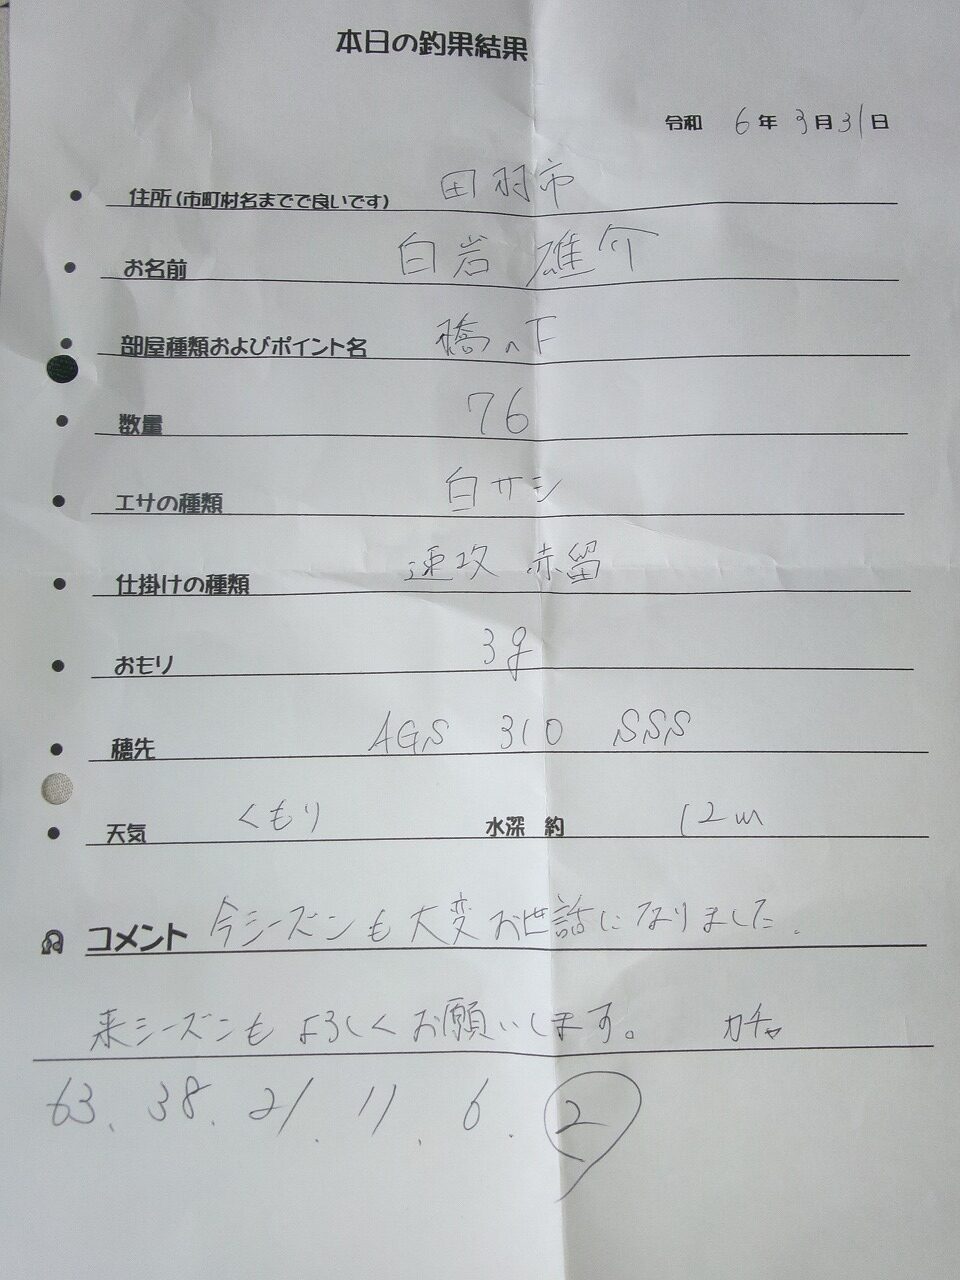 本日の釣果結果
令和 6年 3月31日
住所(市町村名までで良いです) 田羽市
お名前 白岩 雄介
部屋種類およびポイント名 橋の下
数量 76
エサの種類 白サシ
仕掛けの種類 速攻 赤留
おもり 3g
穂先 AGS 310 SSS
天気 くもり 水深 約 12m
コメント 今シーズンも大変お世話になりました.
来シーズンもよろしくお願いします。 ガチャ
63. 38. 21. 11. 6. 2